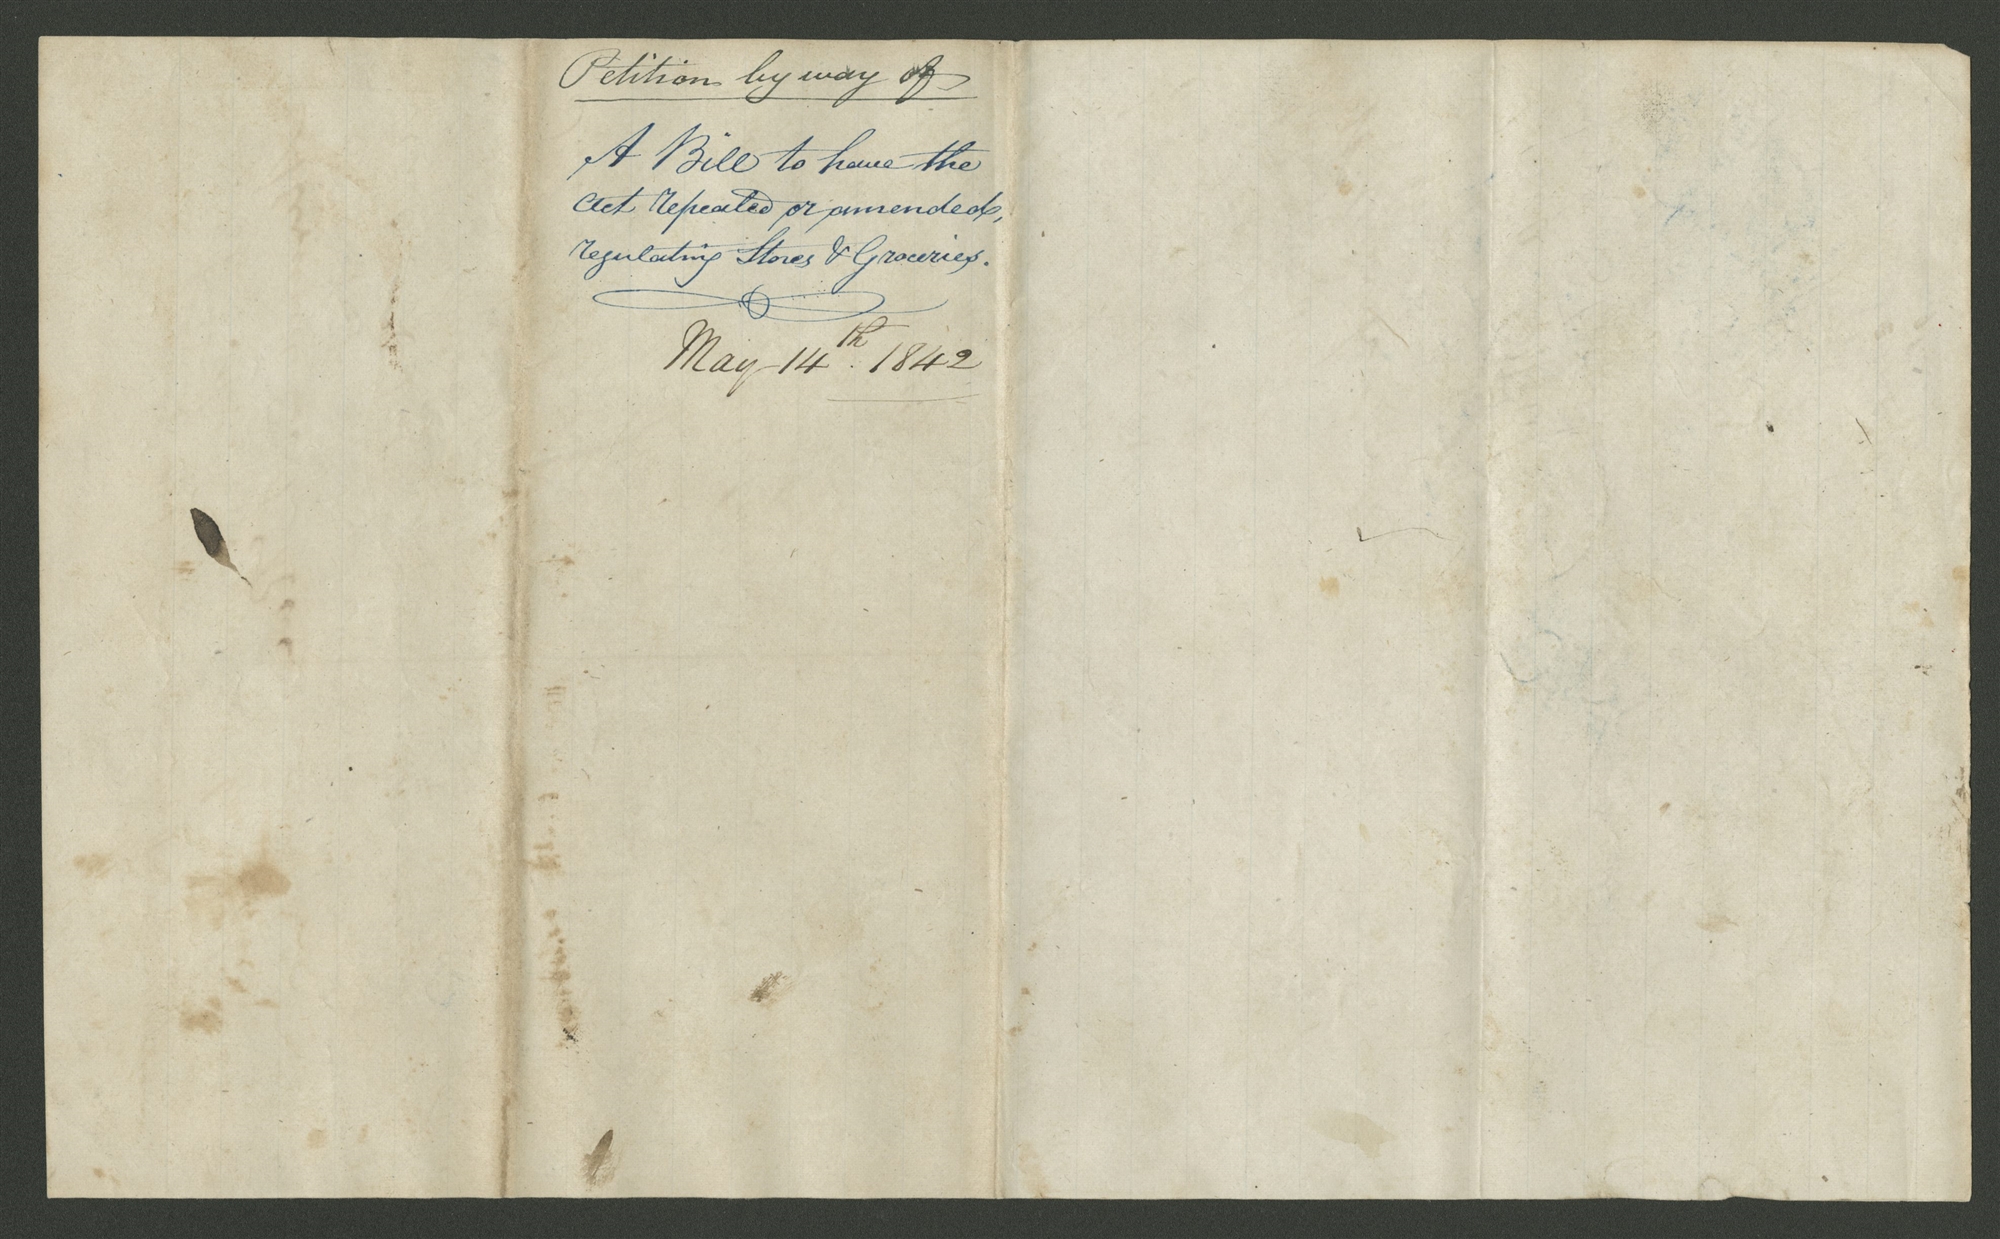 Petition by way of
A Bill to have the
act repealed or amended,
regulating Stores & Groceries.
May 14th. 1842